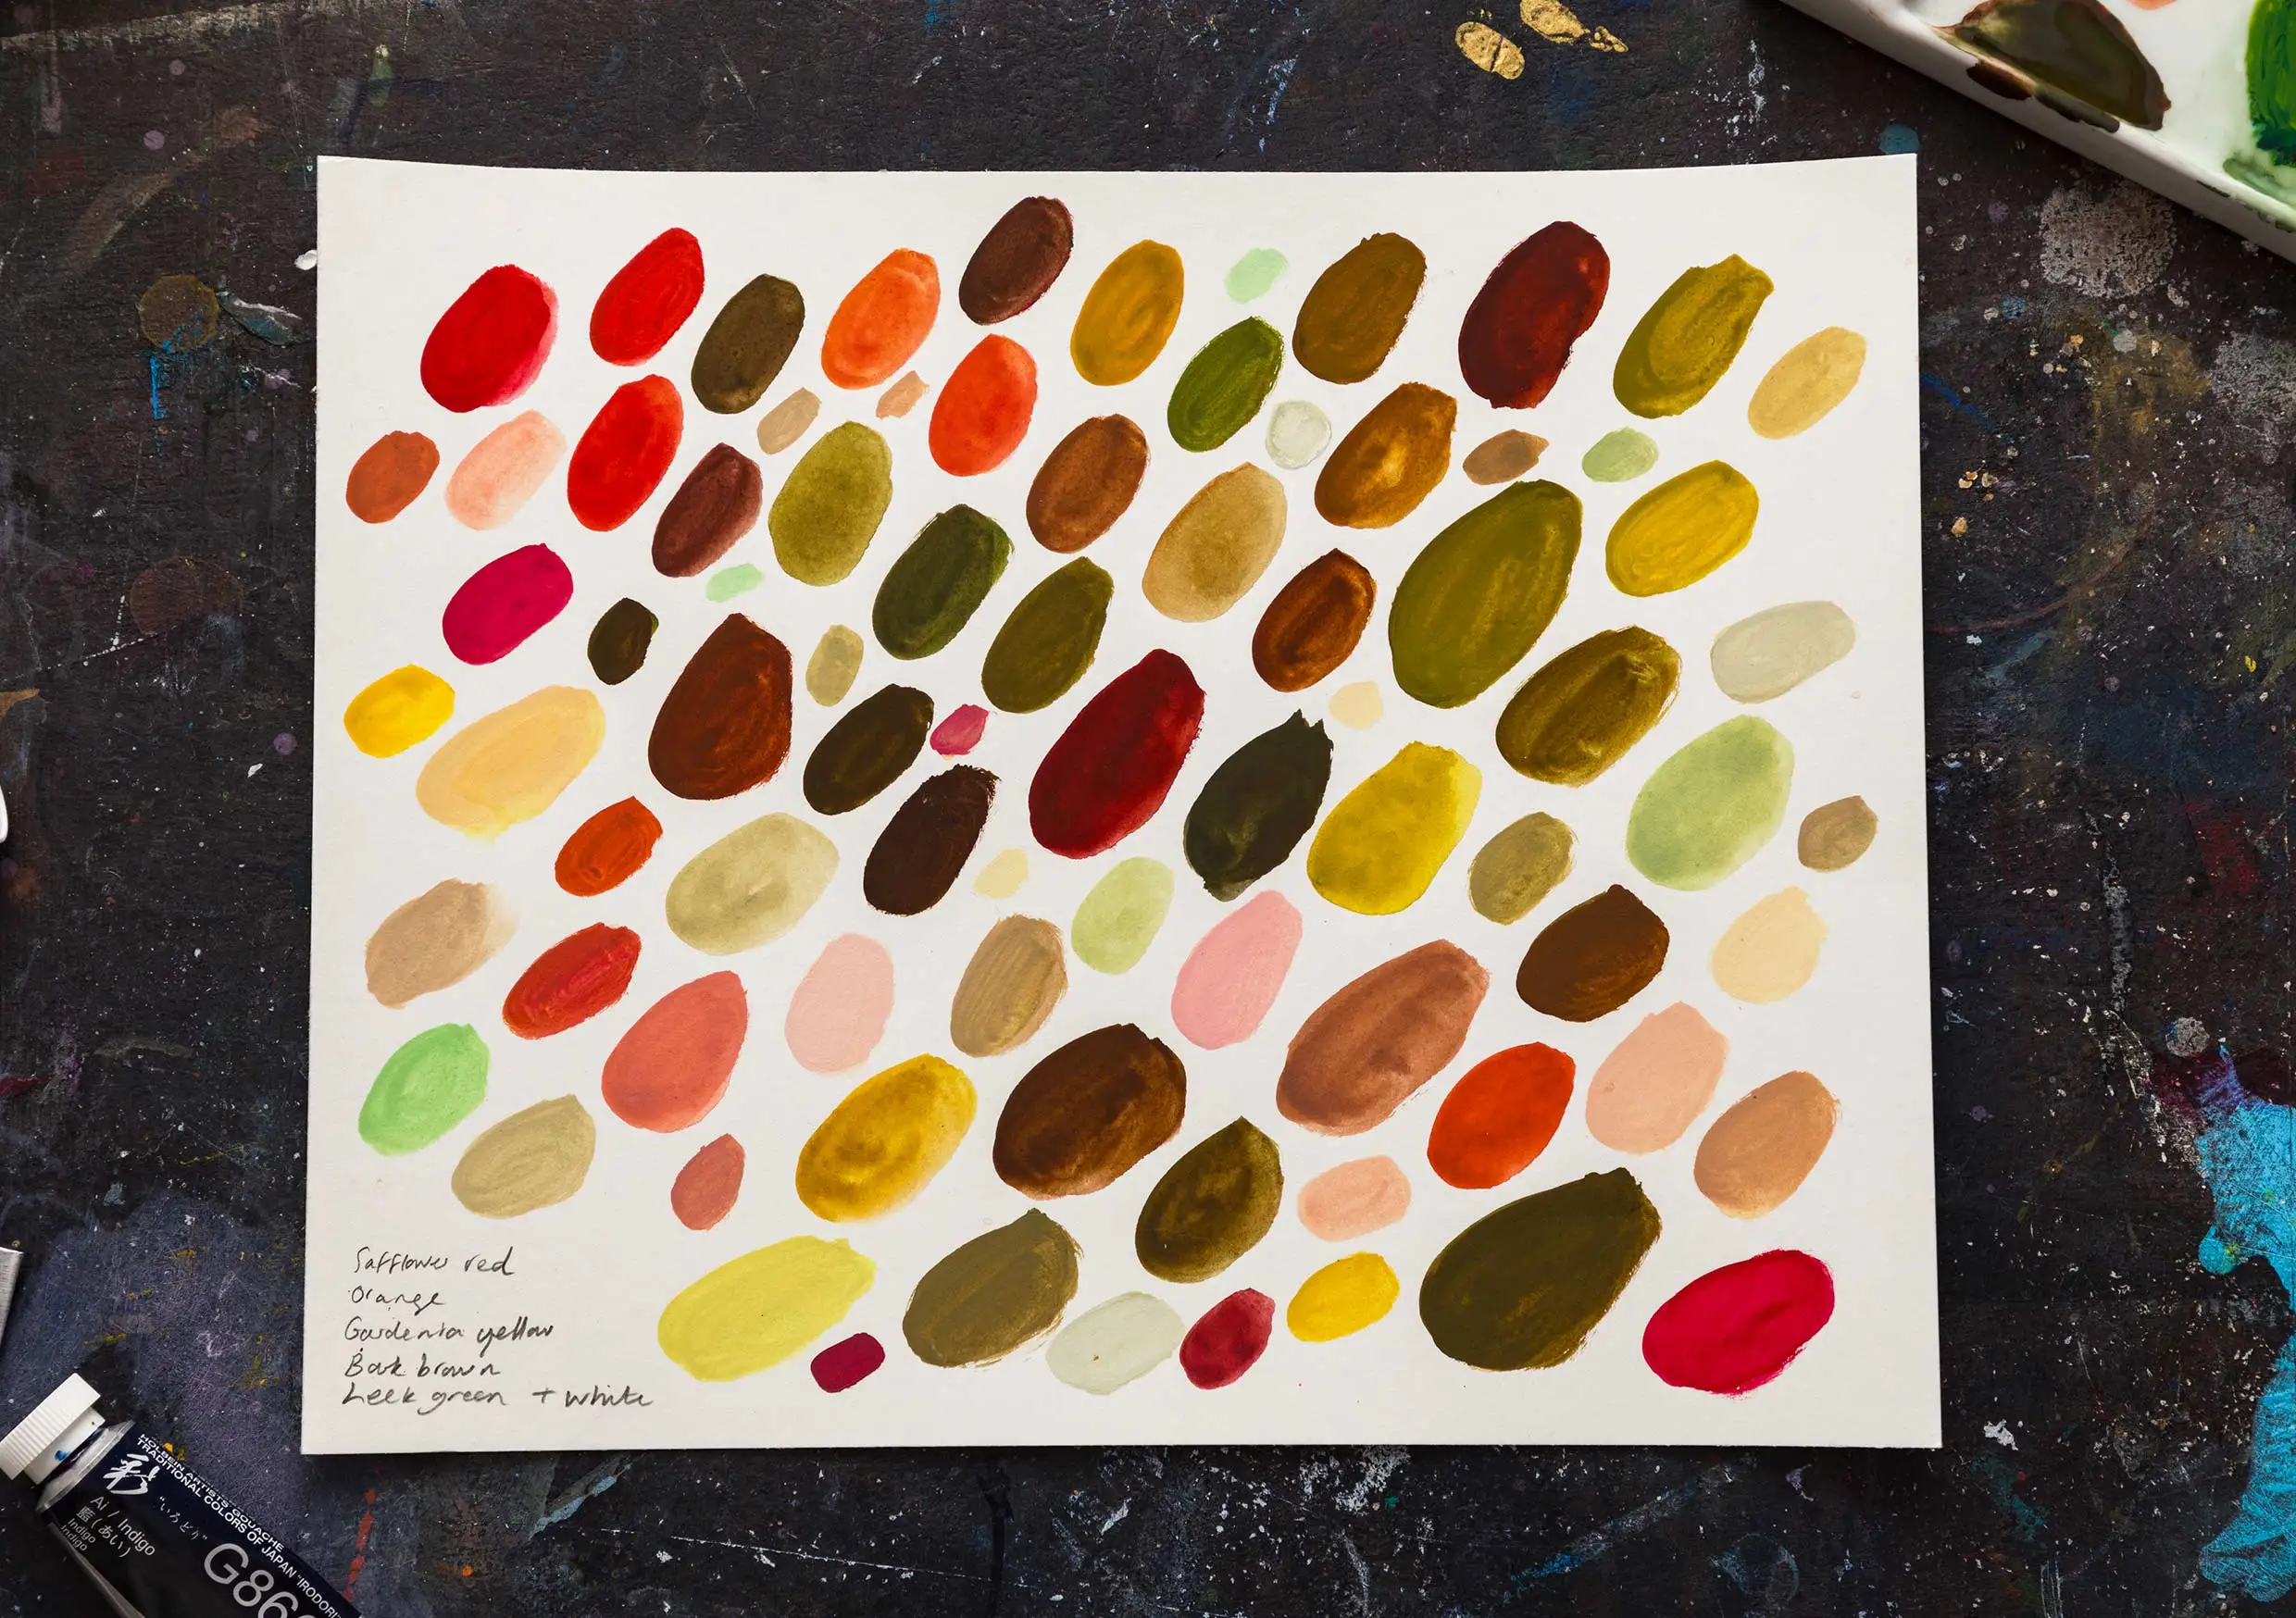 Safflower red
Orange
Gardenia yellow
Bark brown
Leek green + white
HOLBEIN ARTISTS' GOUACHE
TRADITIONAL COLORS OF JAPAN "IRODORI"
彩
"いろどり"
Ai / Indigo
藍(あい)
Indigo
Indigo
G86